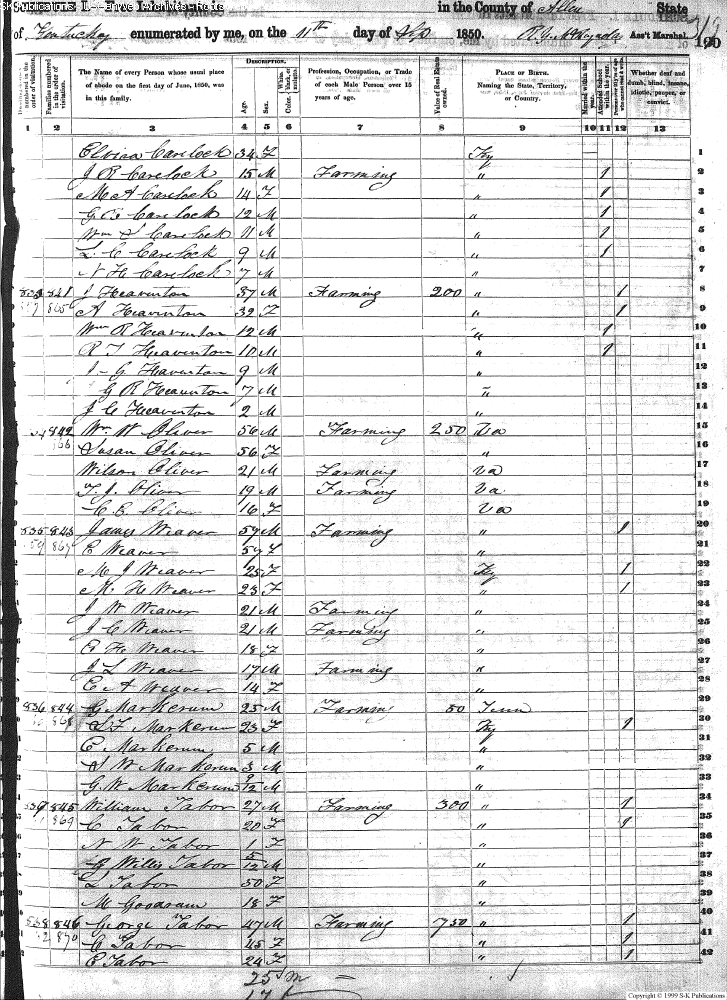 in the County of Allen State
of Kentucky enumerated by me, on the 11th day of Sep 1850. Ass't Marshal.
DESCRIPTION.
The Name of every Person whose usual place of abode on the first day of June, 1850, was in this family.
Age. Sex. Color.
Profession, Occupation, or Trade of each Male Person over 15 years of age.
Value of Real Estate owned.
PLACE OF BIRTH. Naming the State, Territory, or Country.
Married within the year. Attended School within the year.
Whether deaf and dumb, blind, insane, idiotic, pauper, or convict.
1 2 3 4 5 6 7 8 9 10 11 12 13
Carelock 34 F Ky 1
J R Carelock 15 M Farming " 1 2
M A Carelock 14 F " 1 3
Carelock 12 M " 1 4
Wm S Carelock 11 M " 1 5
L. C Carelock 9 M " 1 6
N H Carelock 7 M " 7
841 J Heaverton 37 M Farming 200 " 1 8
865 A Heaverton 32 F " 1 9
Wm R Heaverton 12 M " 1 10
R T Heaverton 10 M " 1 11
G Heaverton 9 M " 12
G R Heaverton 7 M " 13
J C Heaverton 2 M " 14
842 Wm W Oliver 56 M Farming 250 Va 15
Susan Oliver 56 F " 16
Wilson Oliver 21 M Farming Va 17
T. J. Oliver 19 M Farming Va 18
C. E. Oliver 16 F Va 19
535 843 James Weaver 57 M Farming " 1 20
867 E Weaver 57 F " 21
M J Weaver 25 F Ky 1 22
M. H Weaver 23 F " 1 23
J W Weaver 21 M Farming " 24
J C Weaver 21 M Farming " 25
E H Weaver 18 F " 26
J L Weaver 17 M Farming " 27
E A Weaver 14 F " 28
536 844 G Markerum 25 M Farming 50 Tenn 29
868 S F Markerum 23 F Ky 1 30
C Markerum 5 M " 31
S W Markerum 3 M " 32
G W Markerum 9/12 M " 33
537 845 William Tabor 27 M Farming 300 " 1 34
869 C Tabor 20 F " 1 35
N W Tabor 1 F " 36
Willis Tabor 5/12 M " 37
L Tabor 50 F " 38
M Goodrum 18 F " 39
538 846 George Tabor 47 M Farming 750 " 1 40
870 C Tabor 45 F " 1 41
E Tabor 24 F " 1 42
25 m
17 f
Copyright © 1999 S-K Publications